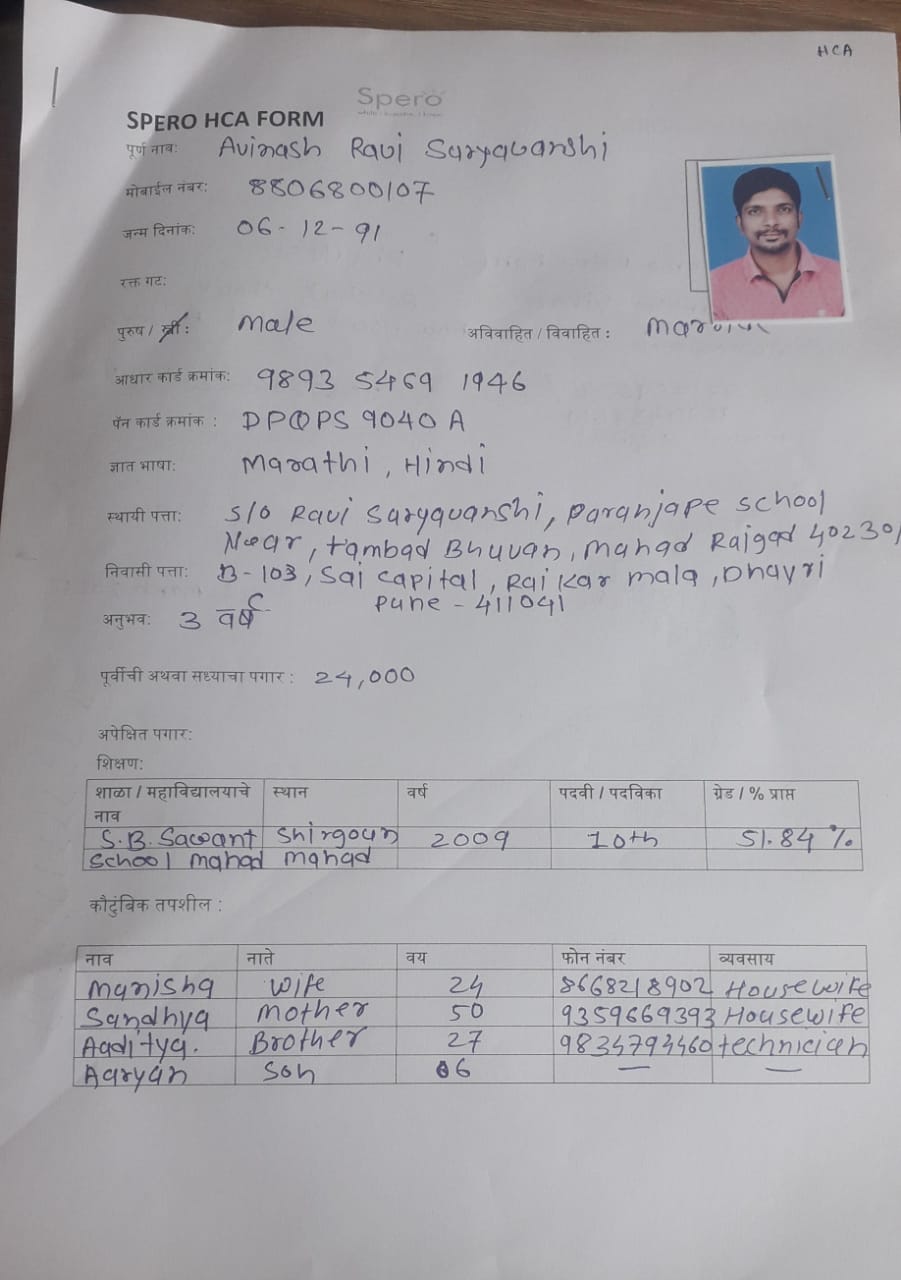 HCA
Spero
SPERO HCA FORM
पूर्ण नाव: Avinash Ravi Suryavanshi
मोबाईल नंबर: 8806800107
जन्म दिनांक: 06-12-91
रक्त गट:
पुरुष / स्त्री: male अविवाहित / विवाहित :
आधार कार्ड क्रमांक: 9893 5469 1946
पॅन कार्ड क्रमांक : DPQPS 9040 A
ज्ञात भाषा: Marathi, Hindi
स्थायी पत्ता: S/O Ravi Suryavanshi, Paranjape School
Near, Tambad Bhuvan, Mahad Raigad 402301
निवासी पत्ता: B-103, Sai Capital, Raikar mala, Dhayri
Pune - 411041
अनुभव: 3 वर्ष
पूर्वीची अथवा सध्याचा पगार : 24,000
अपेक्षित पगार:
शिक्षण:
शाळा / महाविद्यालयाचे नाव स्थान वर्ष पदवी / पदविका ग्रेड / % प्राप्त
S.B. Sawant Shirgoun 2009 10th 51.84 %
School Mahad Mahad
कौटुंबिक तपशील :
नाव नाते वय फोन नंबर व्यवसाय
Manisha Wife 24 8668218902 Housewife
Sandhya Mother 50 9359669393 Housewife
Aaditya. Brother 27 9834794460 technician
Aaryan Son 06 — —